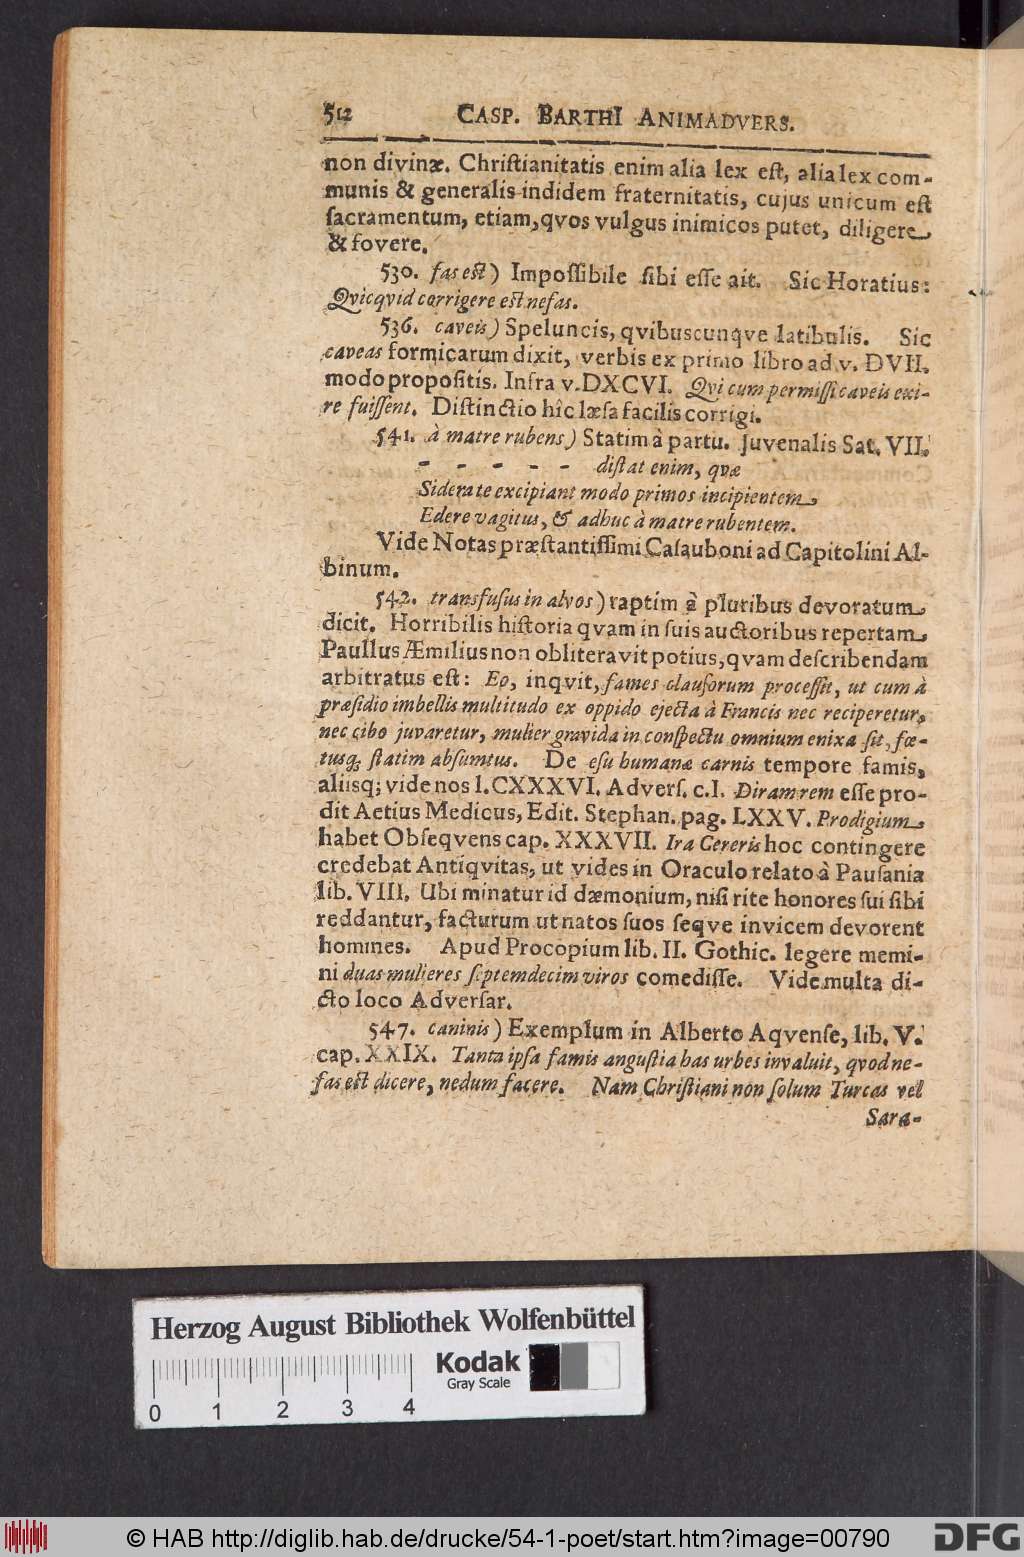 512 CASP. BARTHI ANIMADVERS.
non divinæ. Chriſtianitatis enim alia lex eſt, alia lex com-
munis & generalis indidem fraternitatis, cujus unicum eſt
ſacramentum, etiam, qvos vulgus inimicos putet, diligere
& fovere.
530. fas eſt) Impoſſibile ſibi eſſe ait. Sic Horatius:
Qvicqvid corrigere eſt nefas.
536. caveis) Speluncis, qvibuscunqve latibulis. Sic
caveas formicarum dixit, verbis ex primo libro ad v. DVII.
modo propoſitis. Infra v. DXCVI. Qvi cum permiſſi caveis exi-
re fuiſſent. Diſtinctio hîc læſa facilis corrigi.
541. à matre rubens) Statim à partu. Juvenalis Sat. VII.
- - - - - diſtat enim, qvæ
Sidera te excipiant modo primos incipientem
Edere vagitus, & adhuc à matre rubentem.
Vide Notas præſtantiſſimi Caſauboni ad Capitolini Al-
binum.
542. transfuſus in alvos) raptim à pluribus devoratum
dicit. Horribilis hiſtoria qvam in ſuis auctoribus repertam
Paullus Æmilius non obliteravit potius, qvam deſcribendam
arbitratus eſt: Eo, inqvit, fames clauſorum proceſſit, ut cum à
præſidio imbellis multitudo ex oppido ejecta à Francis nec reciperetur,
nec cibo juvaretur, mulier gravida in conſpectu omnium enixa ſit, fœ-
tusq; ſtatim abſumtus. De eſu humanæ carnis tempore famis,
aliisq; vide nos l. CXXXVI. Adverſ. c. I. Diram rem eſſe pro-
dit Aetius Medicus, Edit. Stephan. pag. LXXV. Prodigium
habet Obſeqvens cap. XXXVII. Ira Cereris hoc contingere
credebat Antiqvitas, ut vides in Oraculo relato à Pauſania
lib. VIII. Ubi minatur id dæmonium, niſi rite honores ſui ſibi
reddantur, facturum ut natos ſuos ſeqve invicem devorent
homines. Apud Procopium lib. II. Gothic. legere memi-
ni duas mulieres ſeptemdecim viros comediſſe. Vide multa di-
cto loco Adverſar.
547. caninis) Exemplum in Alberto Aqvenſe, lib. V.
cap. XXIX. Tanta ipſa famis anguſtia has urbes invaluit, qvod ne-
fas eſt dicere, nedum facere. Nam Chriſtiani non ſolum Turcas vel
Sara-
Herzog August Bibliothek Wolfenbüttel
Kodak
Gray Scale
0 1 2 3 4
© HAB http://diglib.hab.de/drucke/54-1-poet/start.htm?image=00790
DFG